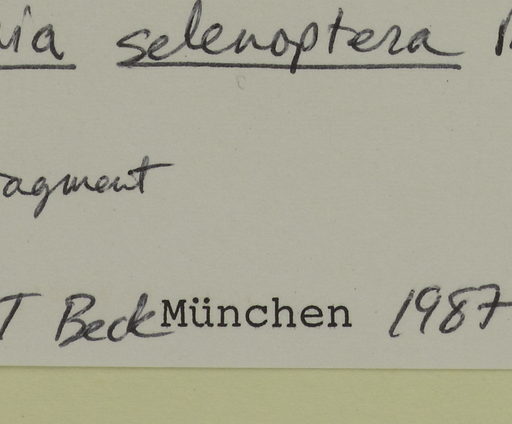 ia selenoptera
agment
T Beck München 1987